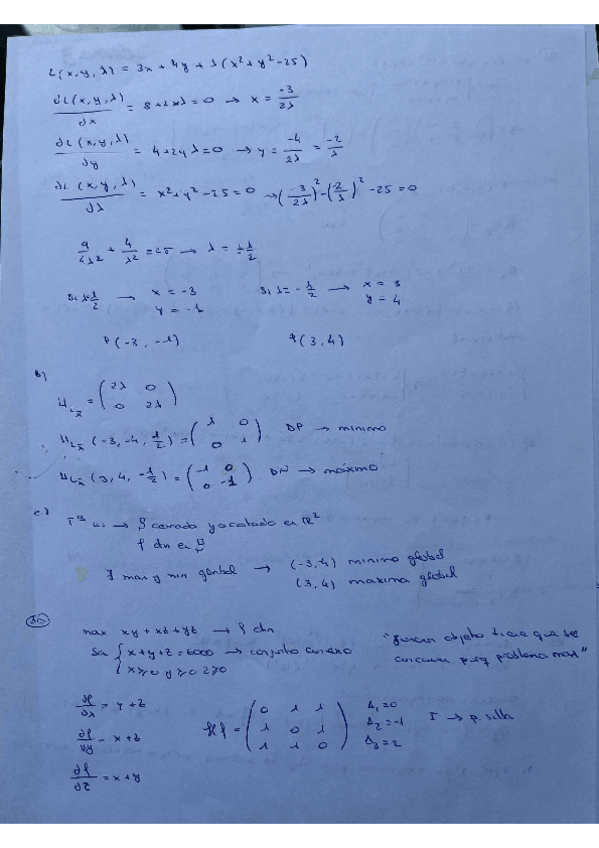 L(x,y,λ) = 3x + 4y + λ(x²+y²-25)
∂L(x,y,λ)/∂x = 3+2xλ=0 → x = -3/2λ
∂L(x,y,λ)/∂y = 4+2yλ=0 → y = -4/2λ = -2/λ
∂L(x,y,λ)/∂λ = x²+y²-25=0 → (-3/2λ)²-(2/λ)²-25=0
9/4λ² + 4/λ² = 25 → λ = ±1/2
Si λ=1/2 → x = -3 Si λ=-1/2 → x = 3
y = -4 y = 4
P(-3, -4) q(3,4)
b)
HLx̄ = (2λ 0
0 2λ)
HLx̄ (-3,-4,1/2) = (1 0
0 1) DP → minimo
HLx̄ (3,4,-1/2) = (-1 0
0 -1) DN → máximo
c)
Tª W. → S cerrado y acotado en R²
f dn en S
∃ max y min global → (-3,4) minimo global
(3,4) maximo global
30
max xy + xz + yz → f dn
Sa {x+y+z = 6000 → conjunto convexo
x≥0 y≥0 z≥0
"funcion objeto tiene que ser
concava porq problema max"
∂f/∂x = y+z
∂f/∂y = x+z
∂f/∂z = x+y
Hf = (0 1 1
1 0 1
1 1 0)
Δ₁=0
Δ₂=-1
Δ₃=2
I → p. silla